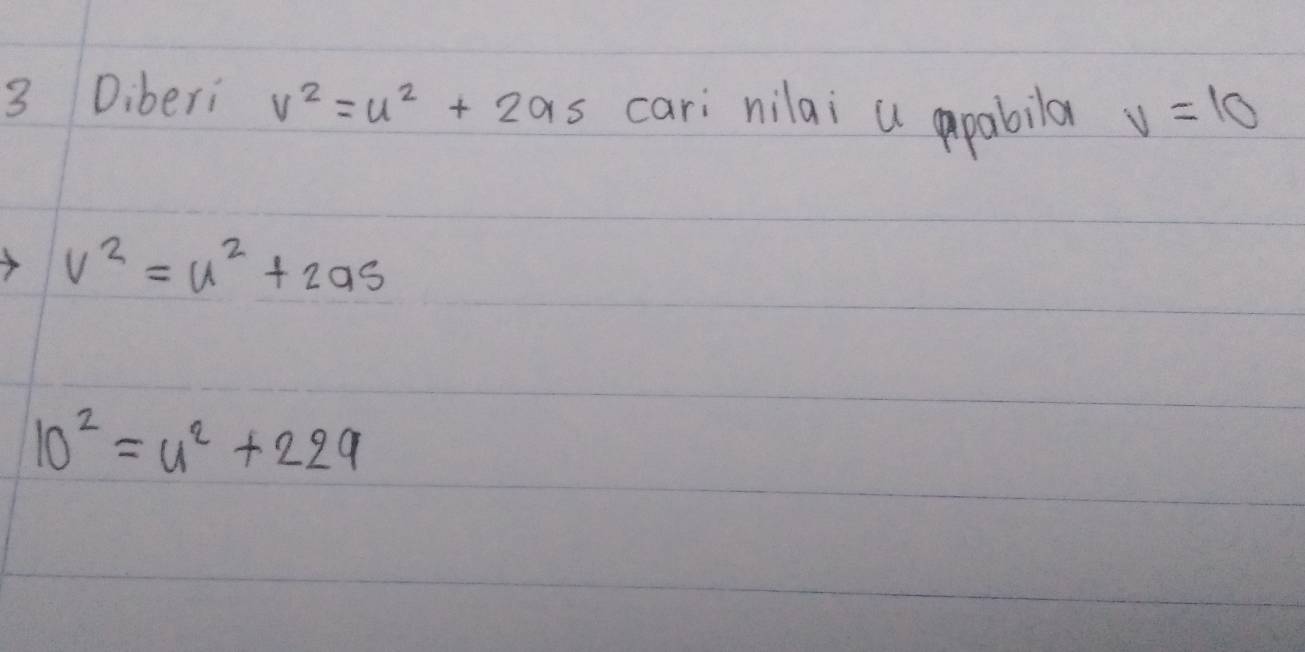 3 Diberi v² = u² + 2as cari nilai u apabila v = 10
→ v² = u² + 2as
10² = u² + 229